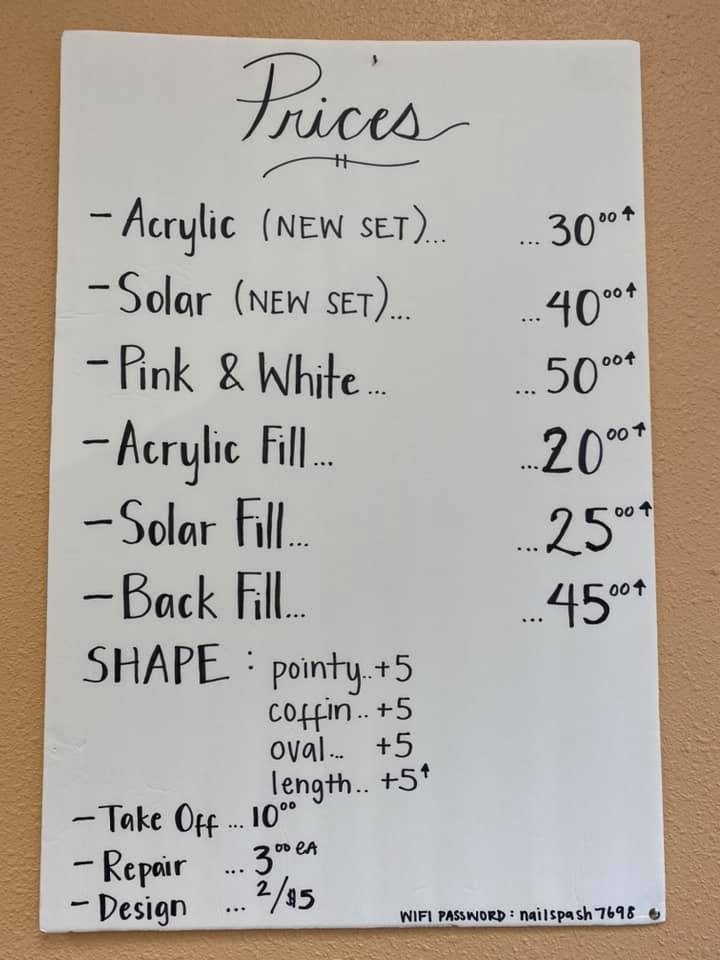 Prices
- Acrylic (NEW SET)... ... 30⁰⁰↑
- Solar (NEW SET)... ... 40⁰⁰↑
- Pink & White... ... 50⁰⁰↑
- Acrylic Fill... ... 20⁰⁰↑
- Solar Fill... ... 25⁰⁰↑
- Back Fill... ... 45⁰⁰↑
SHAPE : pointy..+5
coffin.. +5
oval... +5
length.. +5↑
- Take Off ... 10⁰⁰
- Repair ... 3⁰⁰ eA
- Design ... 2/$5
WIFI PASSWORD : nailspash7698